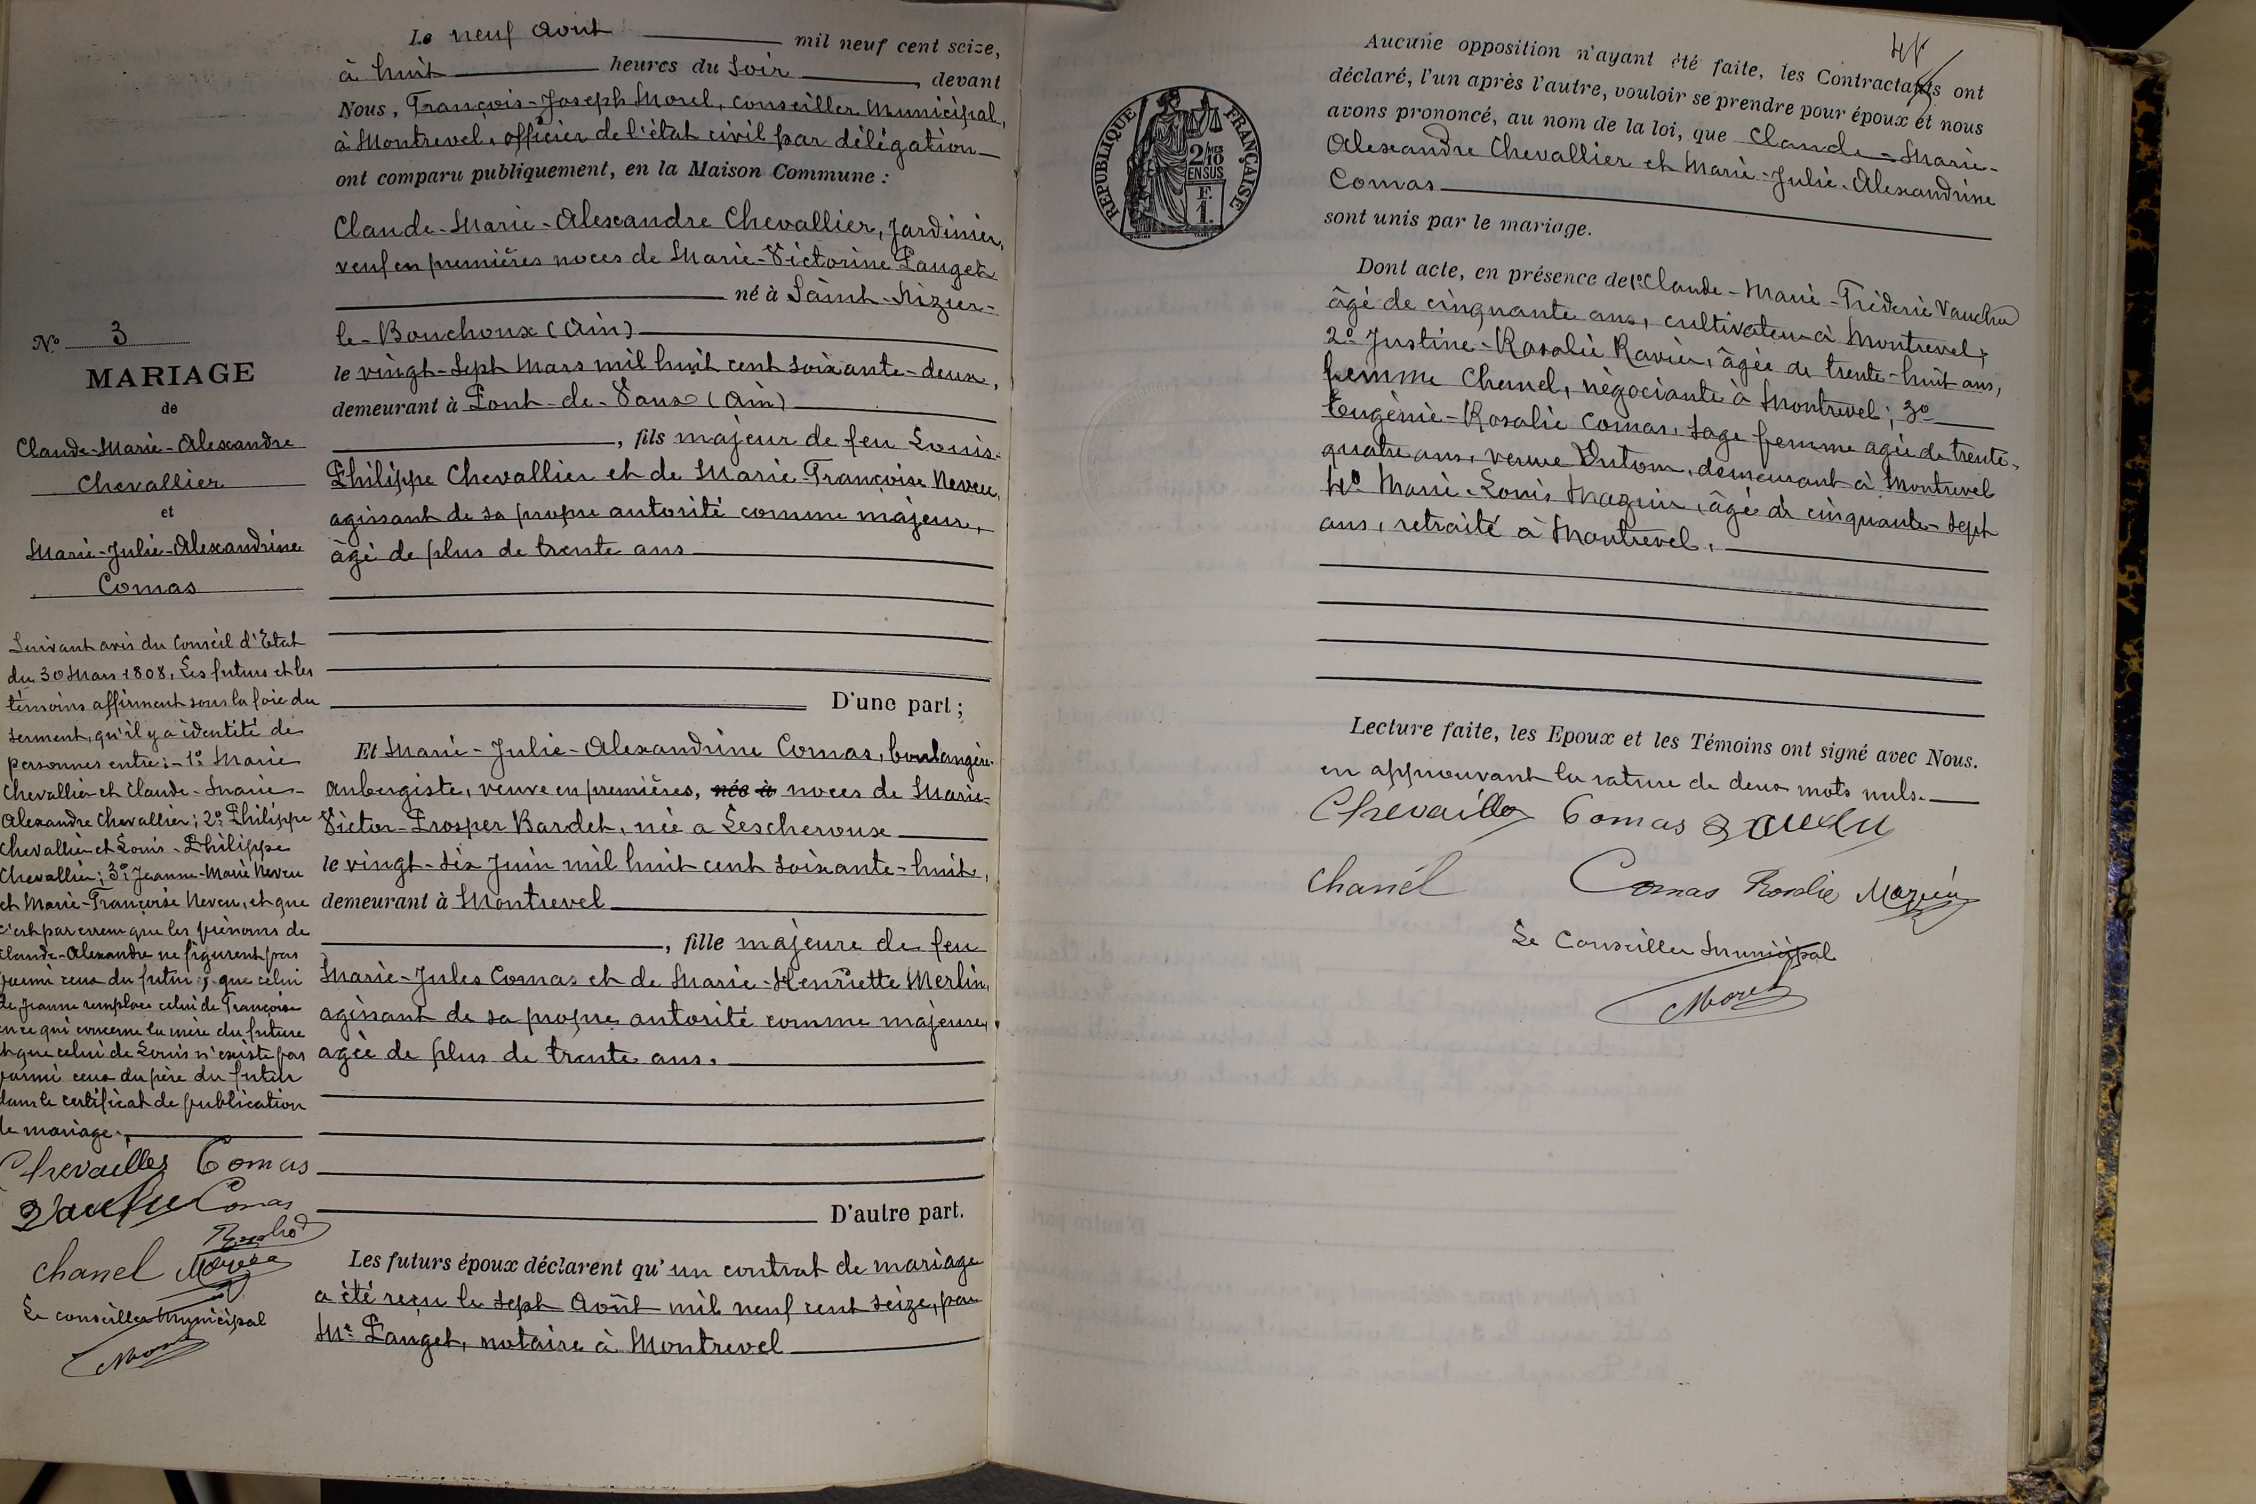 Le neuf Août mil neuf cent seize,
à huit heures du soir, devant
Nous, François-Joseph Morel, conseiller Municipal,
à Montrevel, officier de l'état civil par délégation
ont comparu publiquement, en la Maison Commune :
Claude-Marie-Alexandre Chevallier, Jardinier,
veuf en premières noces de Marie-Victorine Pauget
né à Saint-Nizier-
le-Bouchoux (Ain)
le vingt-sept Mars mil huit cent soixante-deux,
demeurant à Pont-de-Vaux (Ain)
, fils majeur de feu Louis-
Philippe Chevallier et de Marie Françoise Neveu,
agissant de sa propre autorité comme majeur,
âgé de plus de trente ans
D'une part ;
Et Marie-Julie-Alexandrine Comas, boulangère-
Aubergiste, veuve en premières, née à noces de Marie-
Victor-Prosper Bardet, née a Lescheroux
le vingt-six Juin mil huit cent soixante-huit,
demeurant à Montrevel
, fille majeure de feu
Marie-Jules Comas et de Marie-Henriette Merlin,
agissant de sa propre autorité comme majeure,
agée de plus de trente ans.
D'autre part.
Les futurs époux déclarent qu'un contrat de mariage
a été reçu le sept Août mil neuf cent seize, par
Me Pauget, notaire à Montrevel
No 3
MARIAGE
de
Claude-Marie-Alexandre
Chevallier
et
Marie-Julie-Alexandrine
Comas
Suivant avis du Conseil d'Etat
du 30 Mars 1808, Les futurs et les
témoins affirment sous la foie du
serment, qu'il y a identité de
personnes entre :- 1o Marie
Chevallier et Claude-Marie-
Alexandre Chevallier ; 2o Philippe
Chevallier et Louis-Philippe
Chevallier ; 3o Jeanne-Marie Neveu
et Marie-Françoise Neveu, et que
c'est par erreur que les prénoms de
Claude-Alexandre ne figurent pas
parmi ceux du futur ; que celui
de Jeanne remplace celui de Françoise
en ce qui concerne la mère du future
et que celui de Louis n'existe pas
parmi ceux du père du futur
dans le certificat de publication
de mariage.
Chevallier Comas
Vauchu Comas
Rosalie
Chanel
Le conseiller Municipal
Morel
Aucune opposition n'ayant été faite, les Contractants ont
déclaré, l'un après l'autre, vouloir se prendre pour époux et nous
avons prononcé, au nom de la loi, que Claude-Marie-
Alexandre Chevallier et Marie-Julie-Alexandrine
Comas
sont unis par le mariage.
RÉPUBLIQUE FRANÇAISE
2/10MES
EN SUS
F.
1.
Dont acte, en présence de 1o Claude-Marie-Fréderic Vauchu
âgé de cinquante ans, cultivateur à Montrevel ;
2o Justine-Rosalie Ravier, âgée de trente-huit ans,
femme Chanel, négociante à Montrevel ; 3o
Eugènie-Rosalie Comas, sage femme agée de trente-
quatre ans, veuve Dutom, demeurant à Montrevel
4o Marie-Louis Mazuir, âgé de cinquante-sept
ans, retraité à Montrevel.
Lecture faite, les Epoux et les Témoins ont signé avec Nous.
en approuvant la rature de deux mots nuls.
Chevallier Comas Vauchu
Chanel Comas Rosalie
Le Conseiller Municipal
Morel